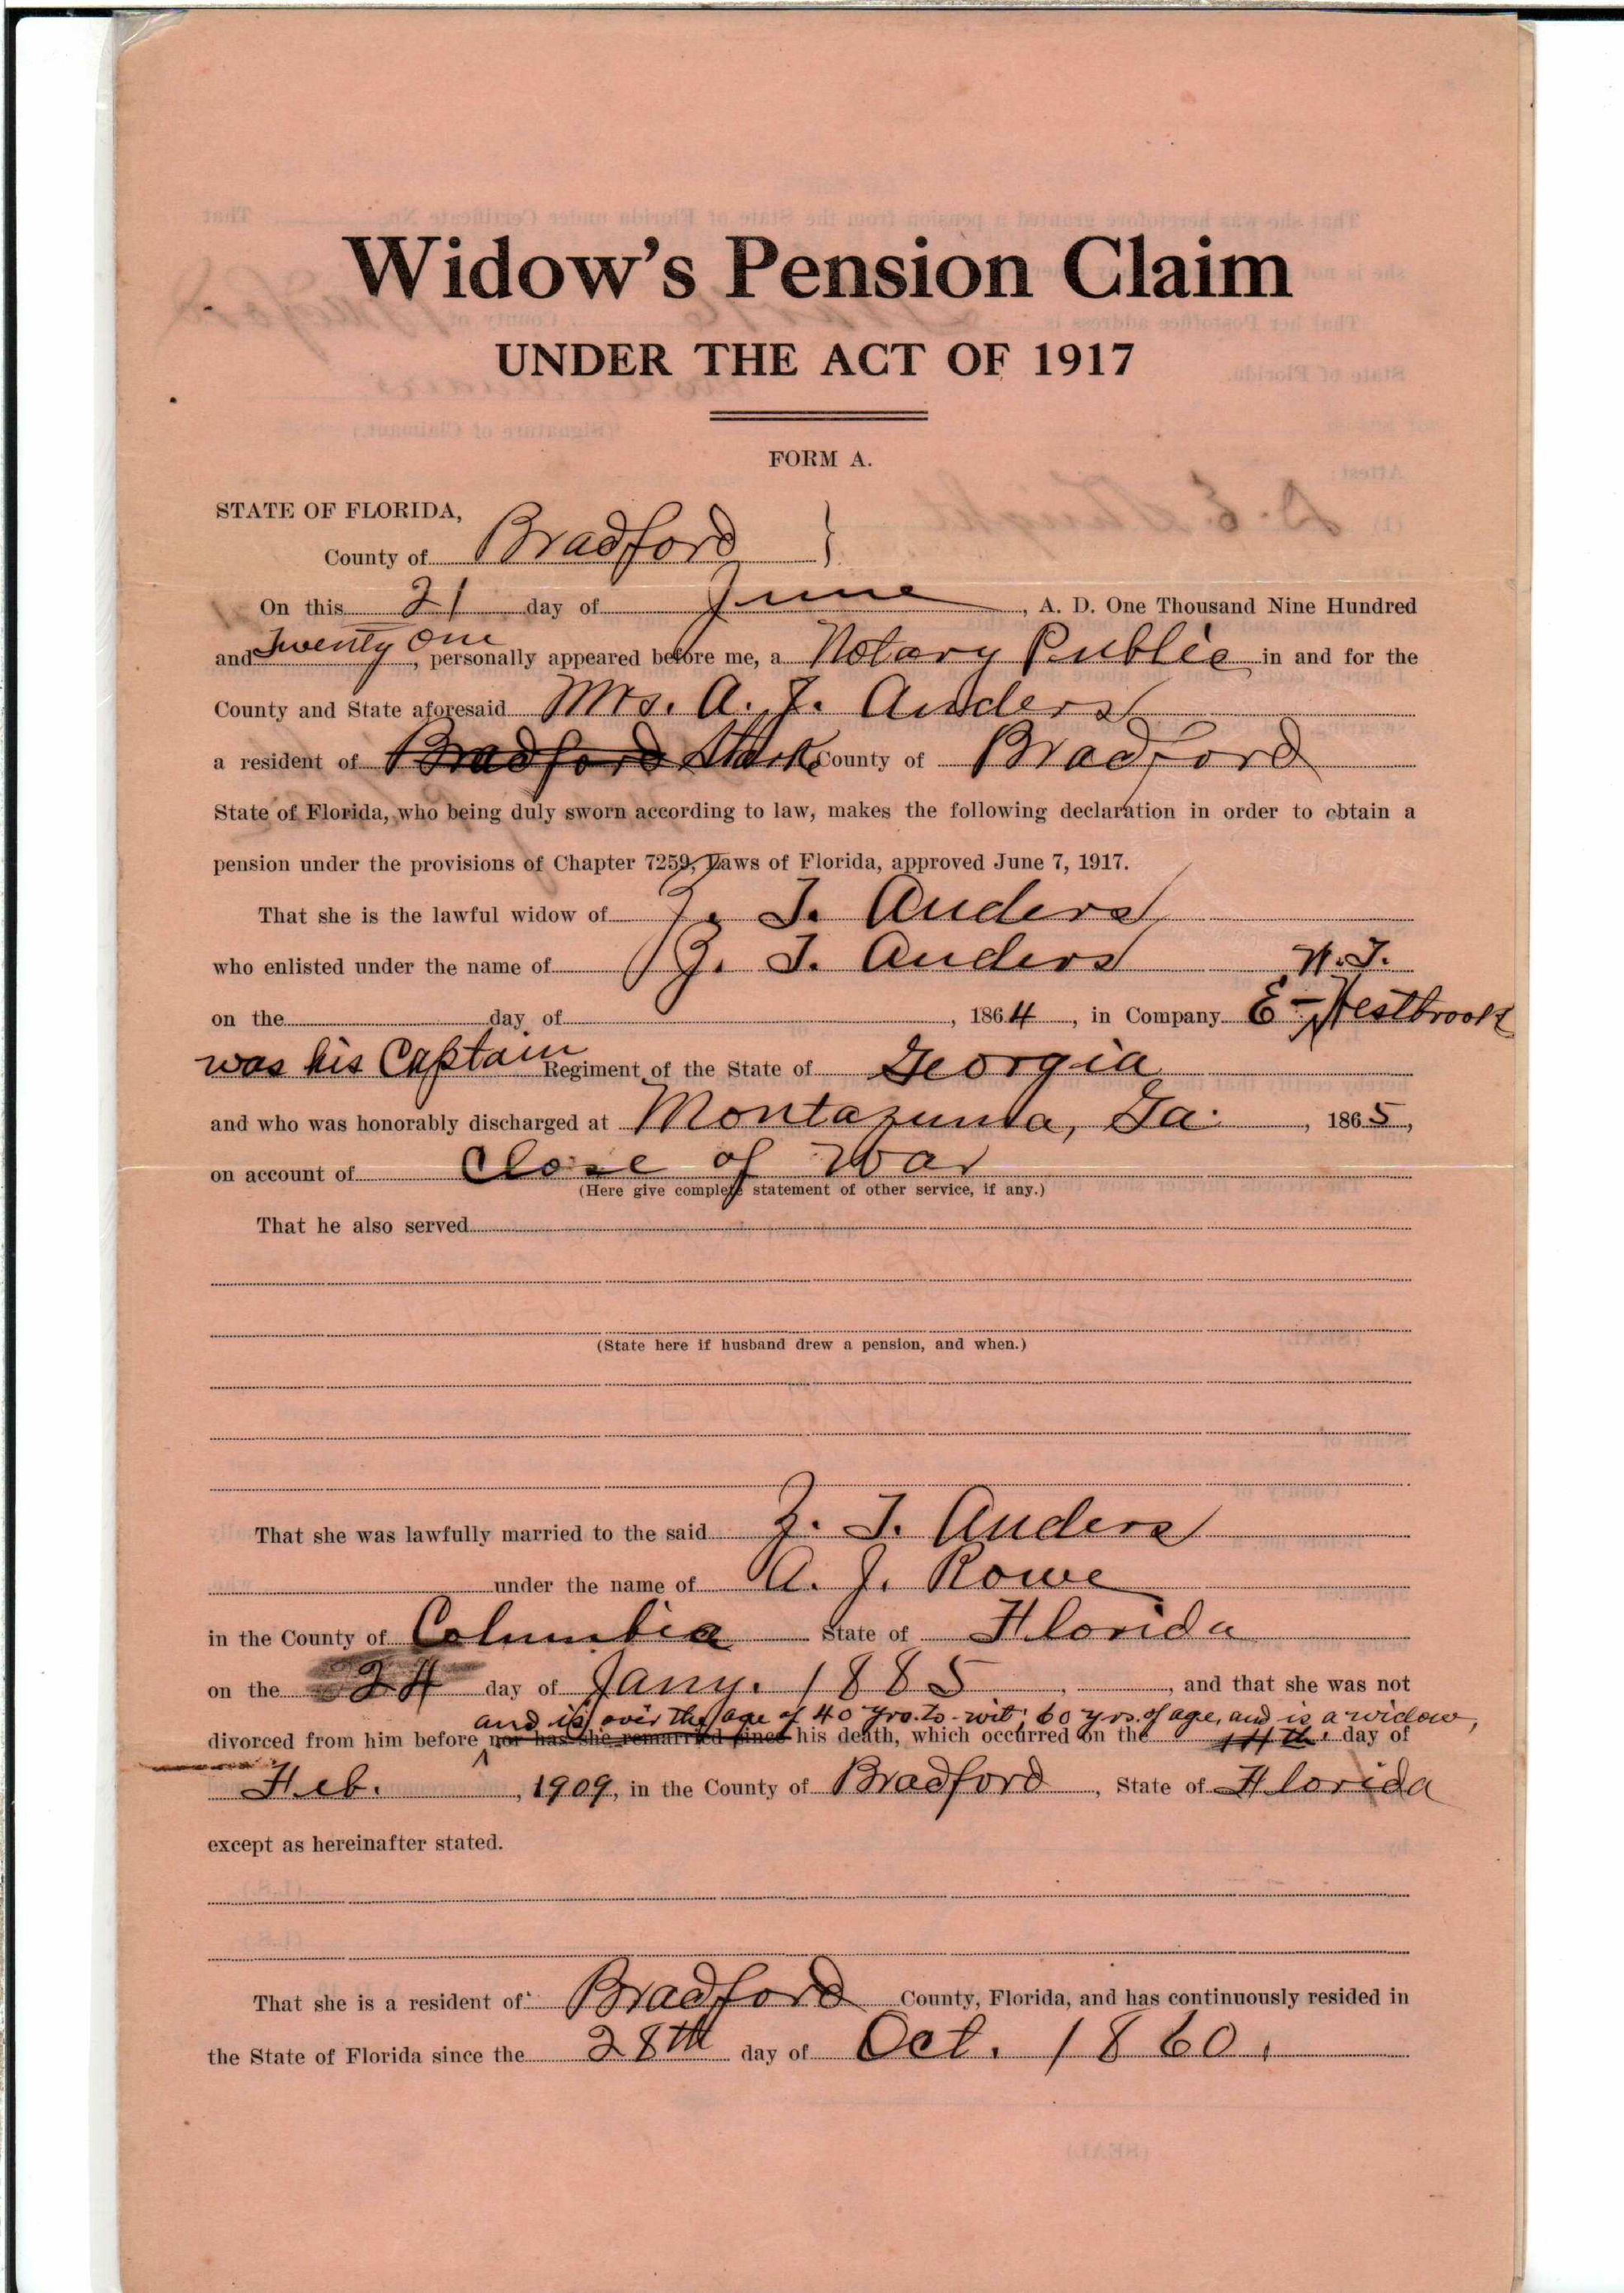 Widow's Pension Claim
UNDER THE ACT OF 1917
FORM A.
STATE OF FLORIDA,
County of Bradford }
On this 21 day of June, A. D. One Thousand Nine Hundred
and Twenty One, personally appeared before me, a Notary Public in and for the
County and State aforesaid Mrs. A. J. Anders
a resident of Bradford Starke County of Bradford
State of Florida, who being duly sworn according to law, makes the following declaration in order to obtain a
pension under the provisions of Chapter 7259, Laws of Florida, approved June 7, 1917.
That she is the lawful widow of Z. T. Anders
who enlisted under the name of Z. T. Anders
on the day of , 1864, in Company E - Westbrook
was his Captain Regiment of the State of Georgia
and who was honorably discharged at Montazuma, Ga. , 1865,
on account of Close of War
(Here give complete statement of other service, if any.)
That he also served
(State here if husband drew a pension, and when.)
That she was lawfully married to the said Z. T. Anders
under the name of A. J. Rowe
in the County of Columbia State of Florida
on the 24 day of Jany. 1885, , and that she was not
and is over the age of 40 yrs. to-wit; 60 yrs. of age, and is a widow,
divorced from him before nor has she remarried since his death, which occurred on the 14th. day of
Feb. , 1909, in the County of Bradford , State of Florida
except as hereinafter stated.
That she is a resident of Bradford County, Florida, and has continuously resided in
the State of Florida since the 28th day of Oct. 1860.